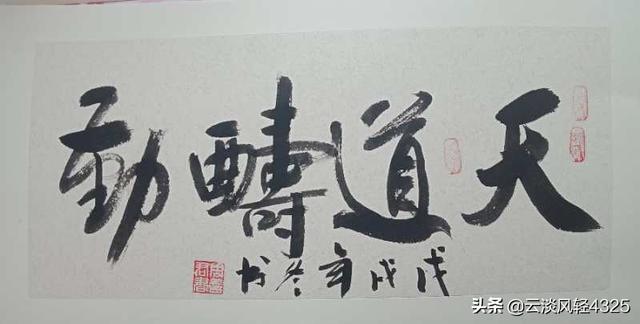 天道醻勤
戊戌年冬书
头条 @云淡风轻4325